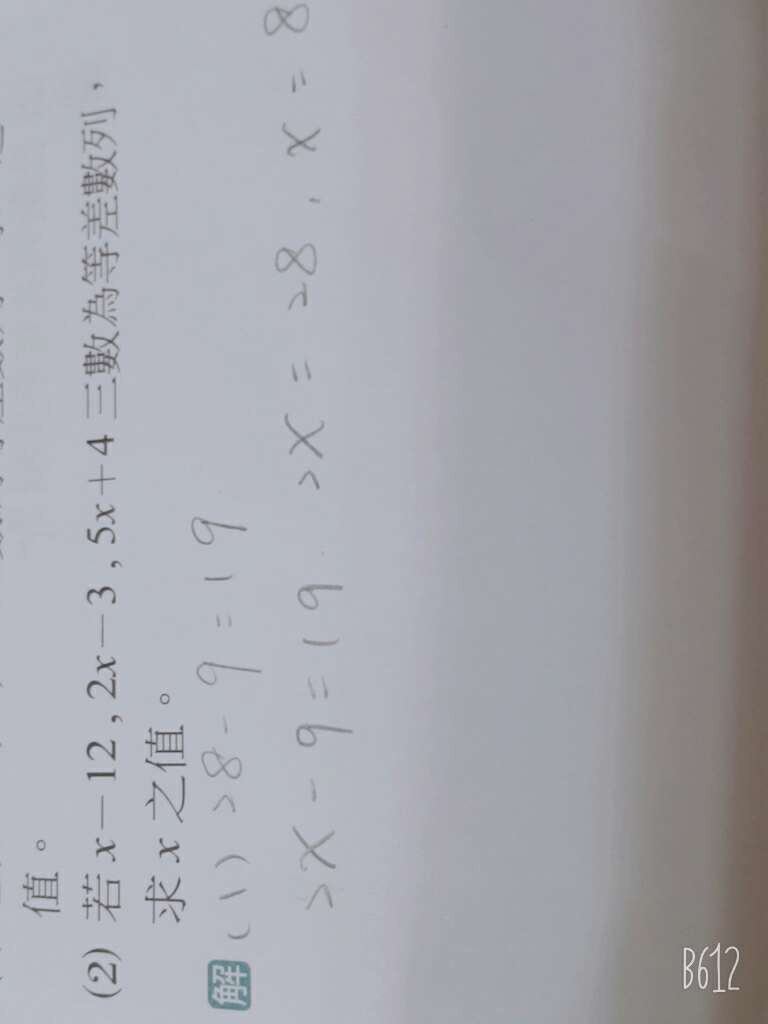 值。
(2) 若 x－12 , 2x－3 , 5x＋4 三數為等差數列，
求 x 之值。
解 (1) 28 - 9 = 19
2x - 9 = 19 2x = 28 , x = 8
B612